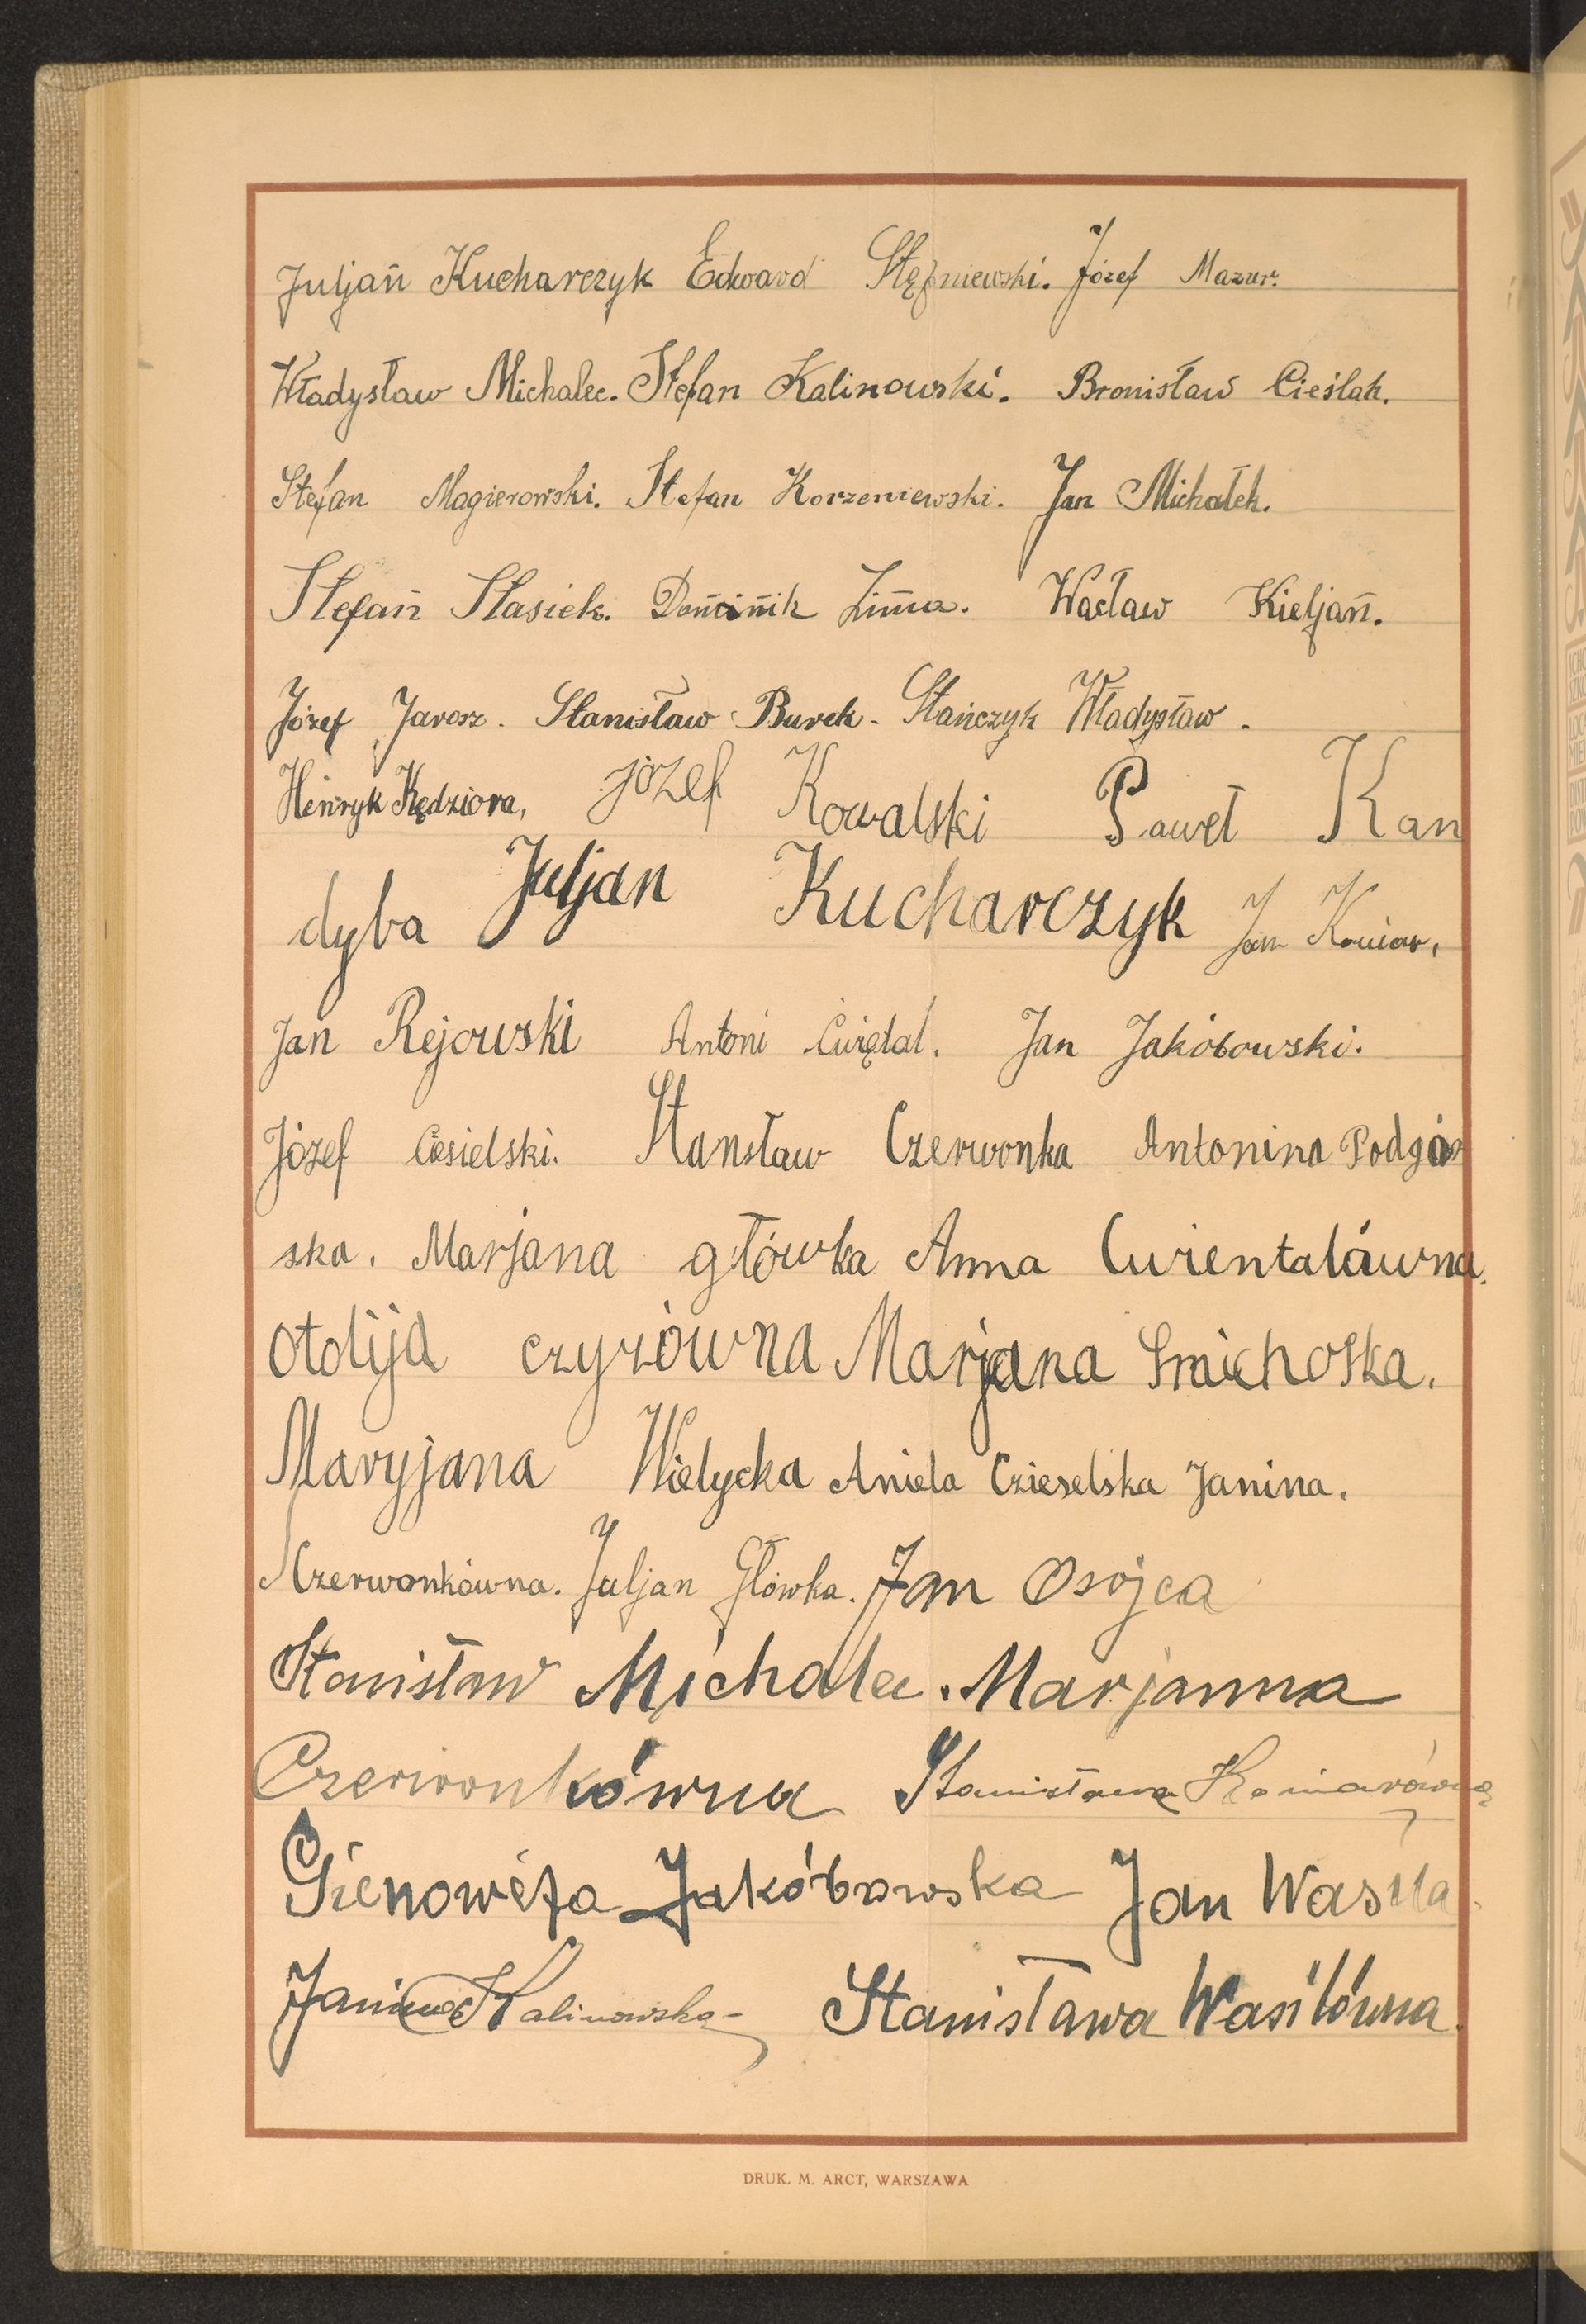 Juljan Kucharczyk Edward Stępniewski. Józef Mazur.
Władysław Michalec. Stefan Kalinowski. Bronisław Cieślak.
Stefan Magierowski. Stefan Korzeniewski. Jan Michałek.
Stefan Stasiek. Dominik Zima. Wacław Kieljan.
Józef Jarosz. Stanisław Burek. Stańczyk Władysław.
Henryk Kędziora, józef Kowalski Paweł Kan
dyba Juljan Kucharczyk Jan Koniar,
Jan Rejowski Antoni Ćwiętal. Jan Jakóbowski.
Józef Ciesielski. Stansław Czerwonka Antonina Podgór
ska. Marjana główka Anna Cwientalówna.
otolija czyżówna Marjana Smichoska.
Maryjana Wielycka Aniela Czieselska Janina.
Czerwonkówna. Juljan Główka. Jan Osojca
Stanisław Michalec. Marjanna
Czerwonkówna Stanisława Koniarówna
Gienowefa Jakóbowska Jan Wasila.
Janina Kalinowska Stanisława Wasilówna.
DRUK. M. ARCT, WARSZAWA